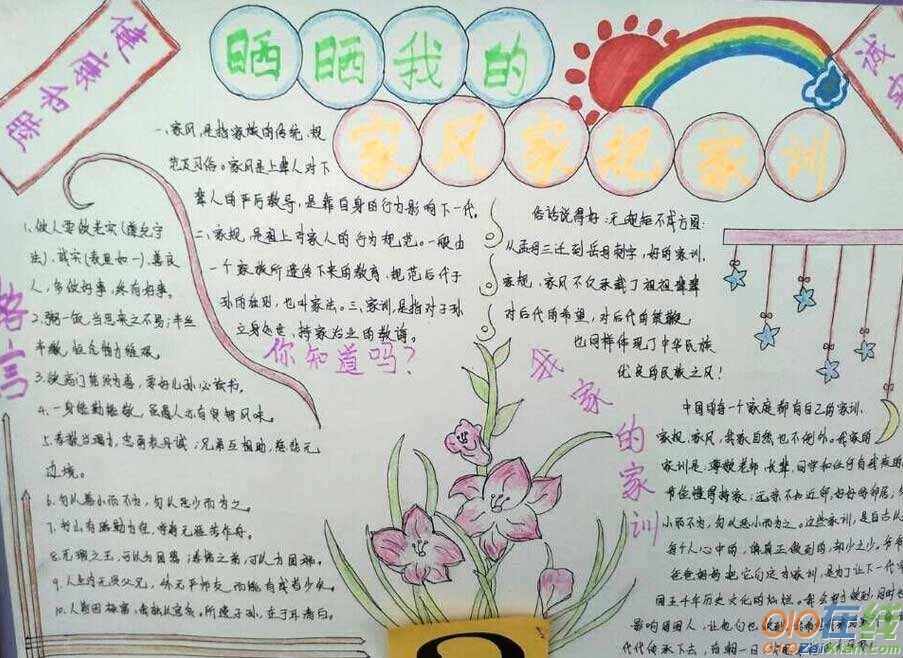 晒晒我的
家风家规家训
健康和睦
诚
格言
一、家风,是指家族的传统规
范及习俗。家风是上辈人对下
辈人的严厉教导,是靠自身的行为影响下一代。
二、家规,是祖上对家人的行为规范。一般由
一个家族所遗传下来的教育、规范后代子
孙的准则,也叫家法。三、家训,是指对子孙
立身处世、持家治业的教诲。
你知道吗?
1.做人要做老实(遵纪守
法)、诚实(表里如一)、善良
人,多做好事,终有好事。
2.粥一饭,当思来之不易;半丝
半缕,恒念物力维艰。
3.欲高门第须为善,要好儿孙必读书。
4.一身
5.孝敬当竭力,忠勇表丹诚;兄弟互相助,慈悲无
边境。
6.勿以恶小而不为,勿以恶少而为之。
7.书山有路勤为径,学海无涯苦作舟。
8.无瑕之玉,可以为国器;孝悌之弟,可以为国瑞。
9.人生内无贤父兄,外无严师友,而能有成者少矣。
10.
俗话说得好:无规矩不成方圆;
从孟母三迁到岳母刺字,好的家训、
家规、家风不仅承载了祖祖辈辈
对后代的希望,对后代的鞭策,
也同样体现了中华民族
优良的民族之风!
我家的家训
中国的每一个家庭都有自己的家训、
家规、家风,我家自然也不例外。我家的
家训是:尊敬老师、长辈、同学和任何
节俭懂得持家;远亲不如近邻,好好待邻居,
小而不为,勿以恶小而为之。这些家训,是自古从
每个人心中的,偶真正做到的,却少之少。爷爷
爸爸妈妈把它们定为家训,是为了让下一代
国五千年历史文化的灿烂。我会努力做到,同时也
影响周围人,让他们也做到
代代传承下去,
OIO在线
OIOZaiXian.com